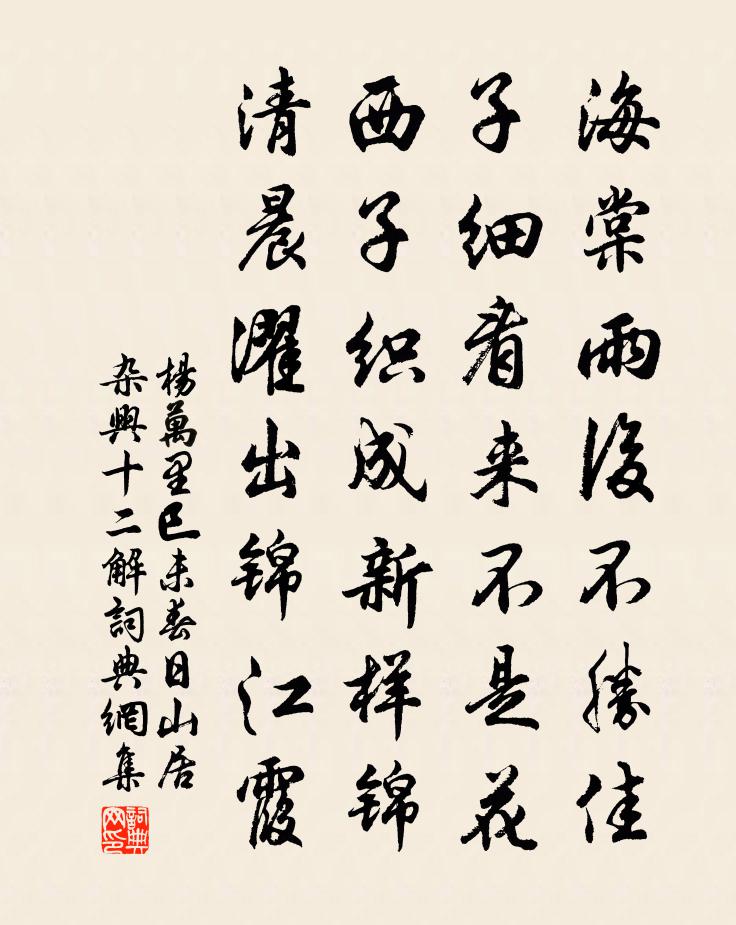 海棠雨后不勝佳
子细看来不是花
西子织成新样锦
清晨濯出锦江霞
楊萬里已未春日山居
杂興十二解詞典網集
詞典
网印